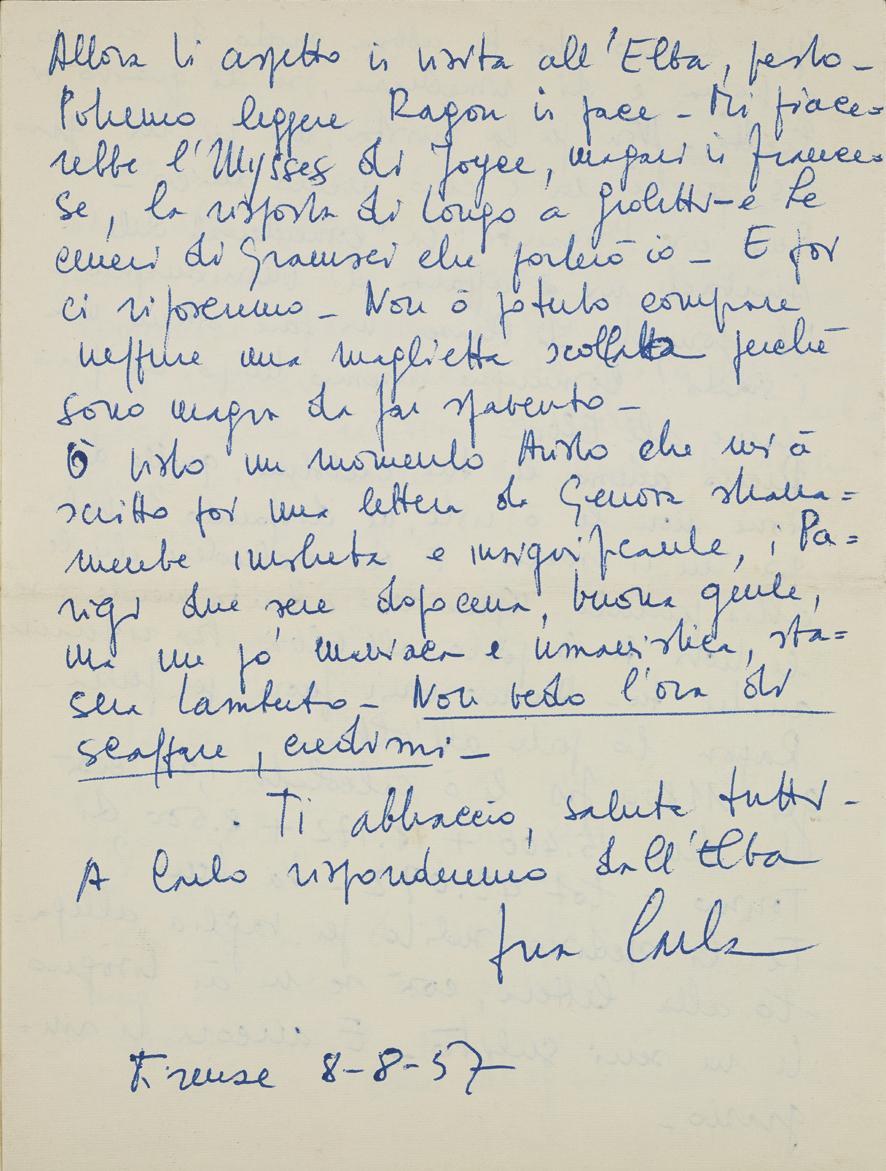 Allora ti aspetto in visita all'Elba, presto –
Potremo leggere Ragon in pace – Mi piace=
rebbe l'Ulysses di Joyce, magari in france=
se, la risposta di Longo a Giolitti – e Le
ceneri di Gramsci che porterò io – E poi
ci riposeremo – Non ò potuto comprare
neppure una maglietta scollata perché
sono magra da far spavento –
Ò visto un momento Aristo che mi à
scritto poi una lettera da Genova strana=
mente inusitata e insignificante, i Pa=
rigi due sere dopocena, buona gente,
ma un po' maniaca e umanistica, sta=
sera Lamberto – Non vedo l'ora di
scappare, credimi –
Ti abbraccio, saluta tutti –
A Carlo risponderemo dall'Elba
tua Carla
Firenze 8-8-57